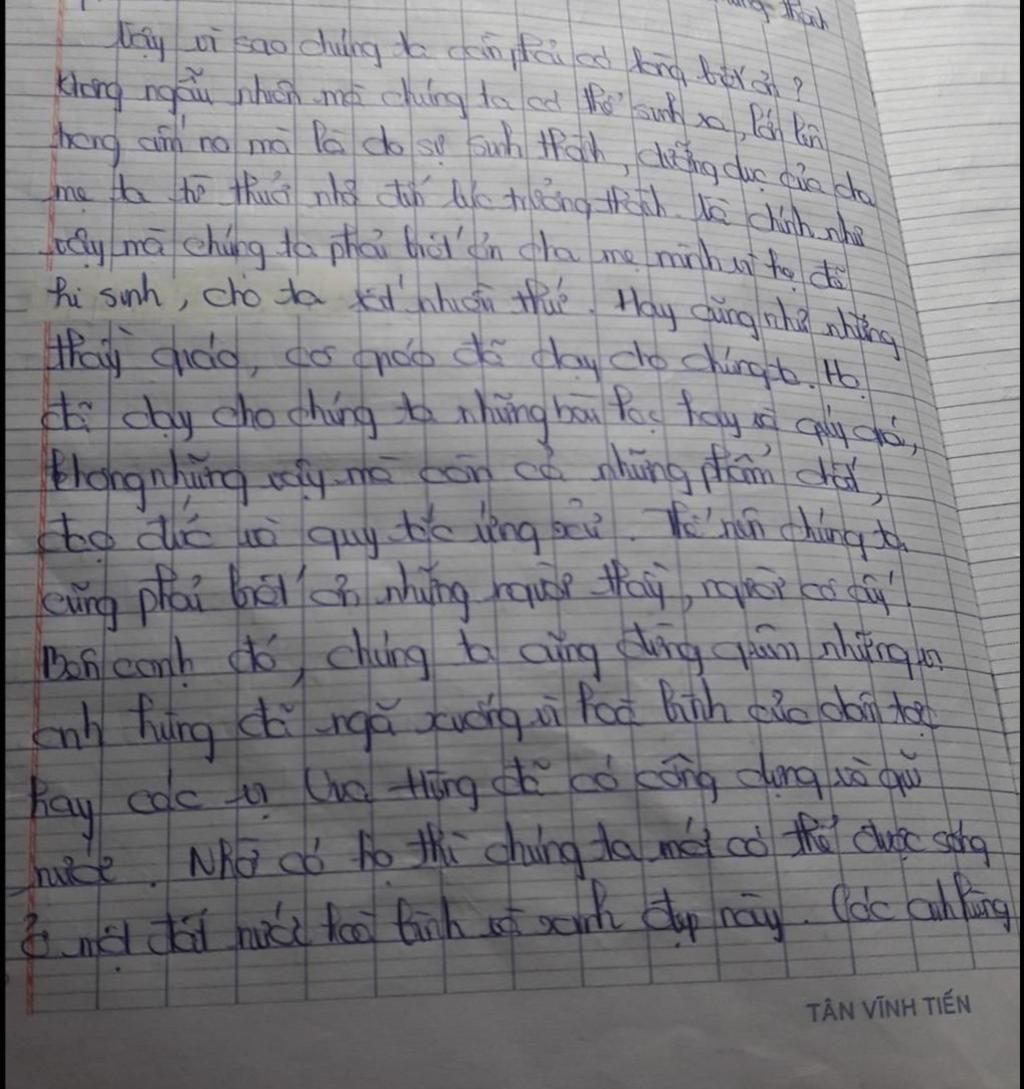 thành
Vậy vì sao chúng ta cần phải có lòng biết ơn?
Không ngẫu nhiên mà chúng ta có thể sinh ra, lớn lên
trong ấm no mà là do sự sinh thành, dưỡng dục của cha
mẹ ta từ thuở nhỏ đến lúc trưởng thành. Và chính như
vậy mà chúng ta phải biết ơn cha mẹ mình vì họ đã
hi sinh, cho ta rất nhiều thứ. Hay cũng như những
thầy giáo, cô giáo đã dạy cho chúng ta. Họ
đã dạy cho chúng ta những bài học hay và quý giá,
không những vậy mà còn cả những phẩm chất,
đạo đức và quy tắc ứng xử. Thế nên chúng ta
cũng phải biết ơn những người thầy, người cô ấy.
Bên cạnh đó, chúng ta cũng đừng quên những
anh hùng đã ngã xuống vì hoà bình của dân tộc
hay các vị Vua Hùng đã có công dựng và giữ
nước. Nhờ có họ thì chúng ta mới có thể được sống
ở một đất nước hoà bình và xanh đẹp này. Các anh hùng
TÂN VĨNH TIẾN